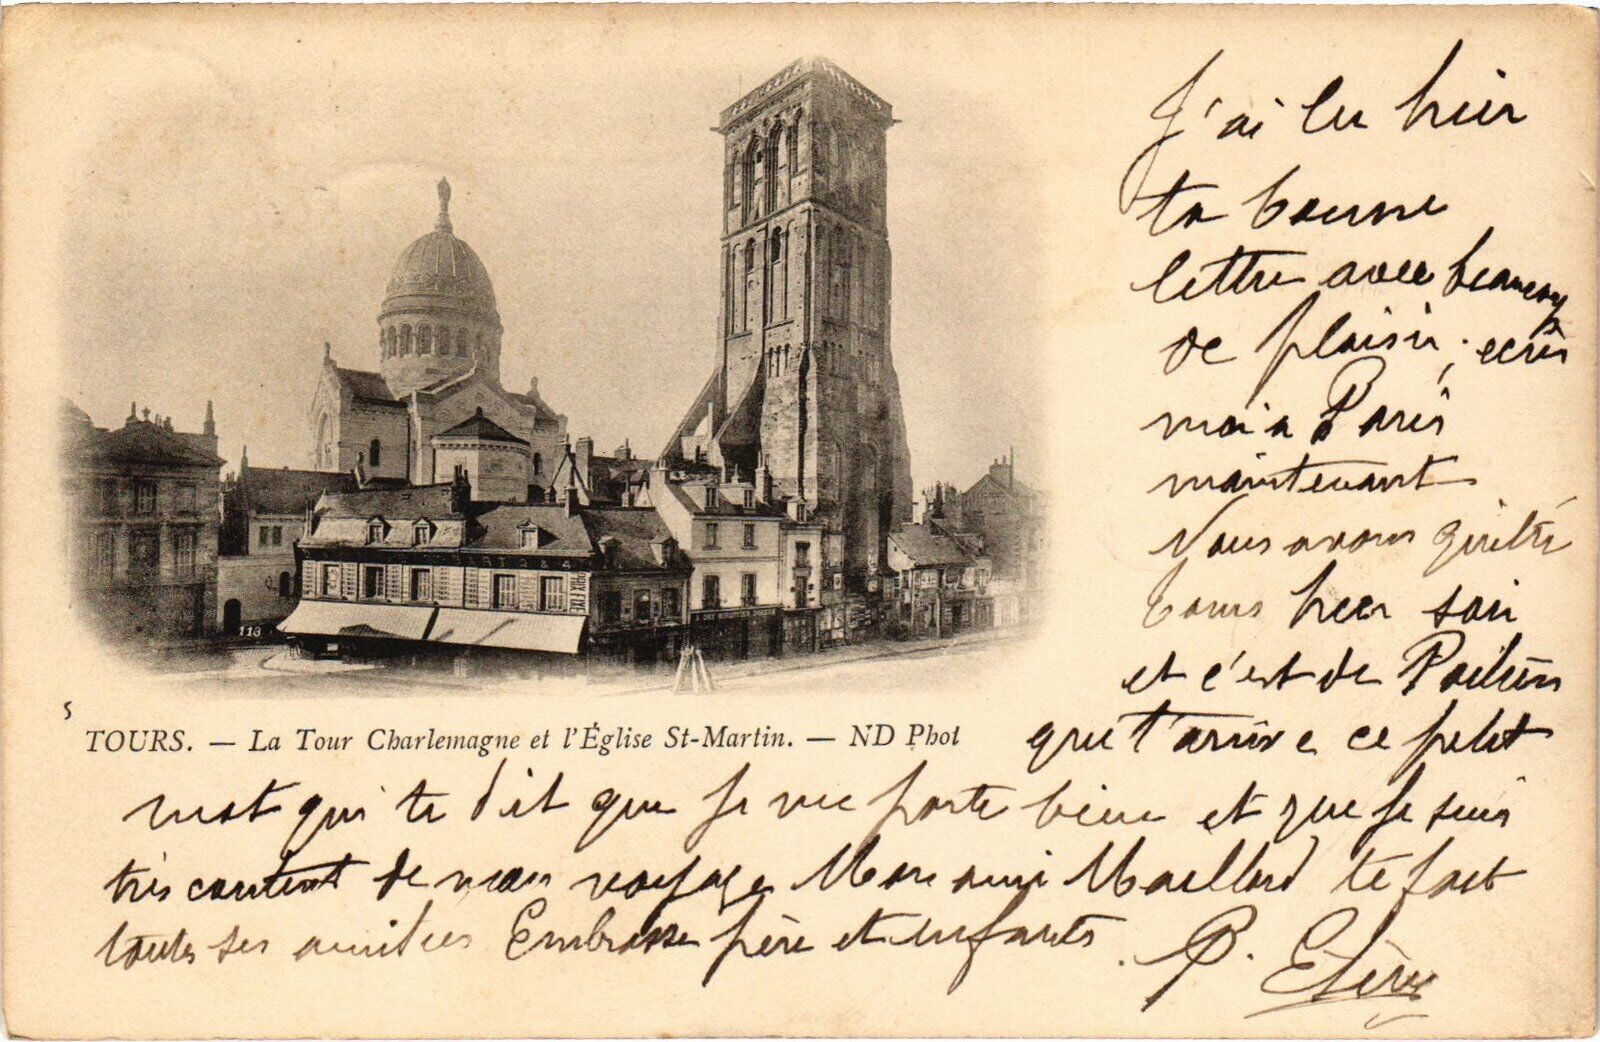 J'ai lu hier
ta bonne
lettre avec beaucoup
de plaisir; ecris
moi a Paris
maintenant
Nous avons quitté
Tours hier soir
et c'est de Poitiers
que t'arrive ce petit
mot qui te dit que je me porte bien et que je suis
très content de mon voyage Mon ami Maillard te fait
toutes ses amitiés Embrasse père et enfants. P.
118
5
TOURS. — La Tour Charlemagne et l'Église St-Martin. — ND Phot